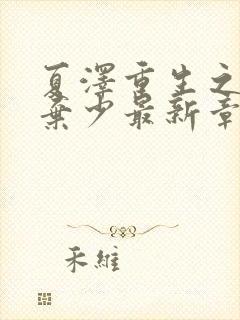 夏泽重生之
弃少最新章
禾维